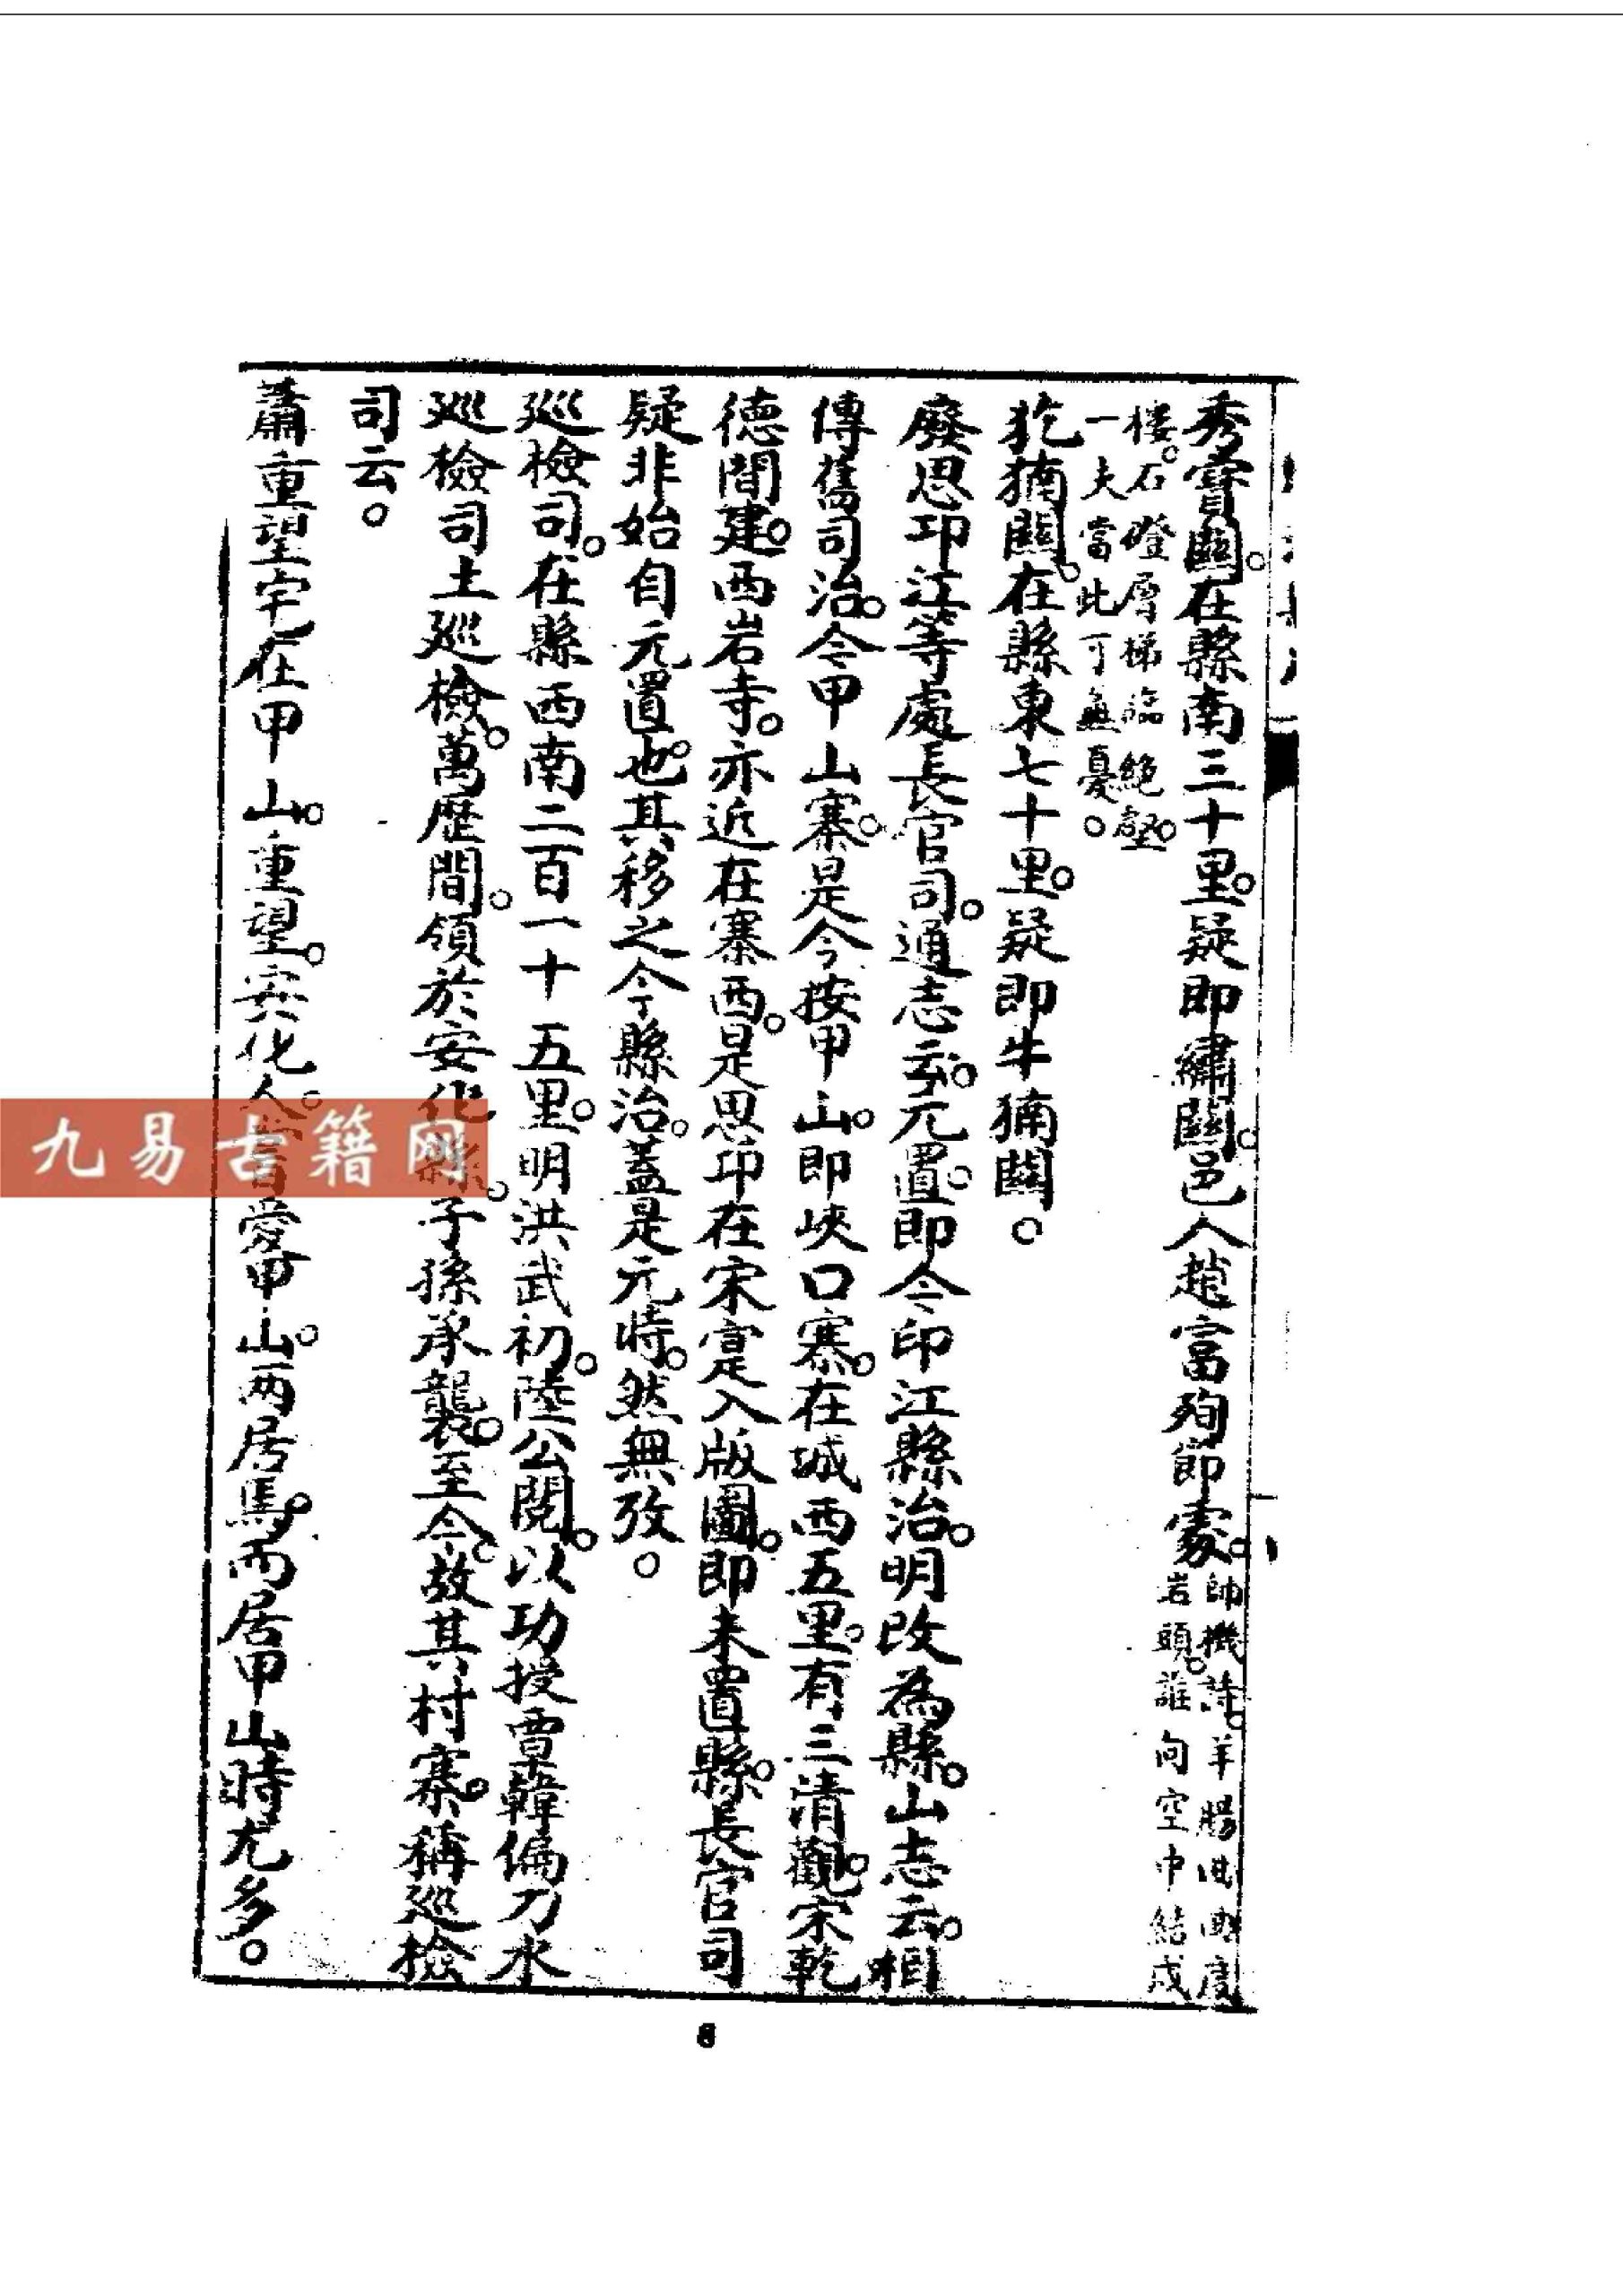 秀寶關。在縣南三十里。疑即繡關。邑人趙富殉節處。帥機詩。羊腸曲曲度
岩頭。誰向空中結戍
樓。石磴層梯臨絶壑。
一夫當此可無憂。
犵狫關。在縣東七十里。疑即牛狫關。
廢思印江等處長官司。通志云。元置。即今印江縣治。明改為縣。山志云。相
傳舊司治。今甲山寨。是今按甲山。即峽口寨。在城西五里。有三清觀。宋乾
德間建。西岩寺。亦近在寨西。是思卭在宋寔入版圖。即未置縣。長官司
疑非始自元置也。其移之今縣治。蓋是元時。然無攷。
廵檢司。在縣西南二百一十五里。明洪武初。陸公閱。以功授覃韓偏刀水
廵檢司土廵檢。萬歷間。領於安化縣。子孫承襲。至今。故其村寨。稱廵檢
司云。
蕭重望宅在甲山。重望。安化人。愛甲山。两居焉。而居甲山時尤多。
8
九易古籍网